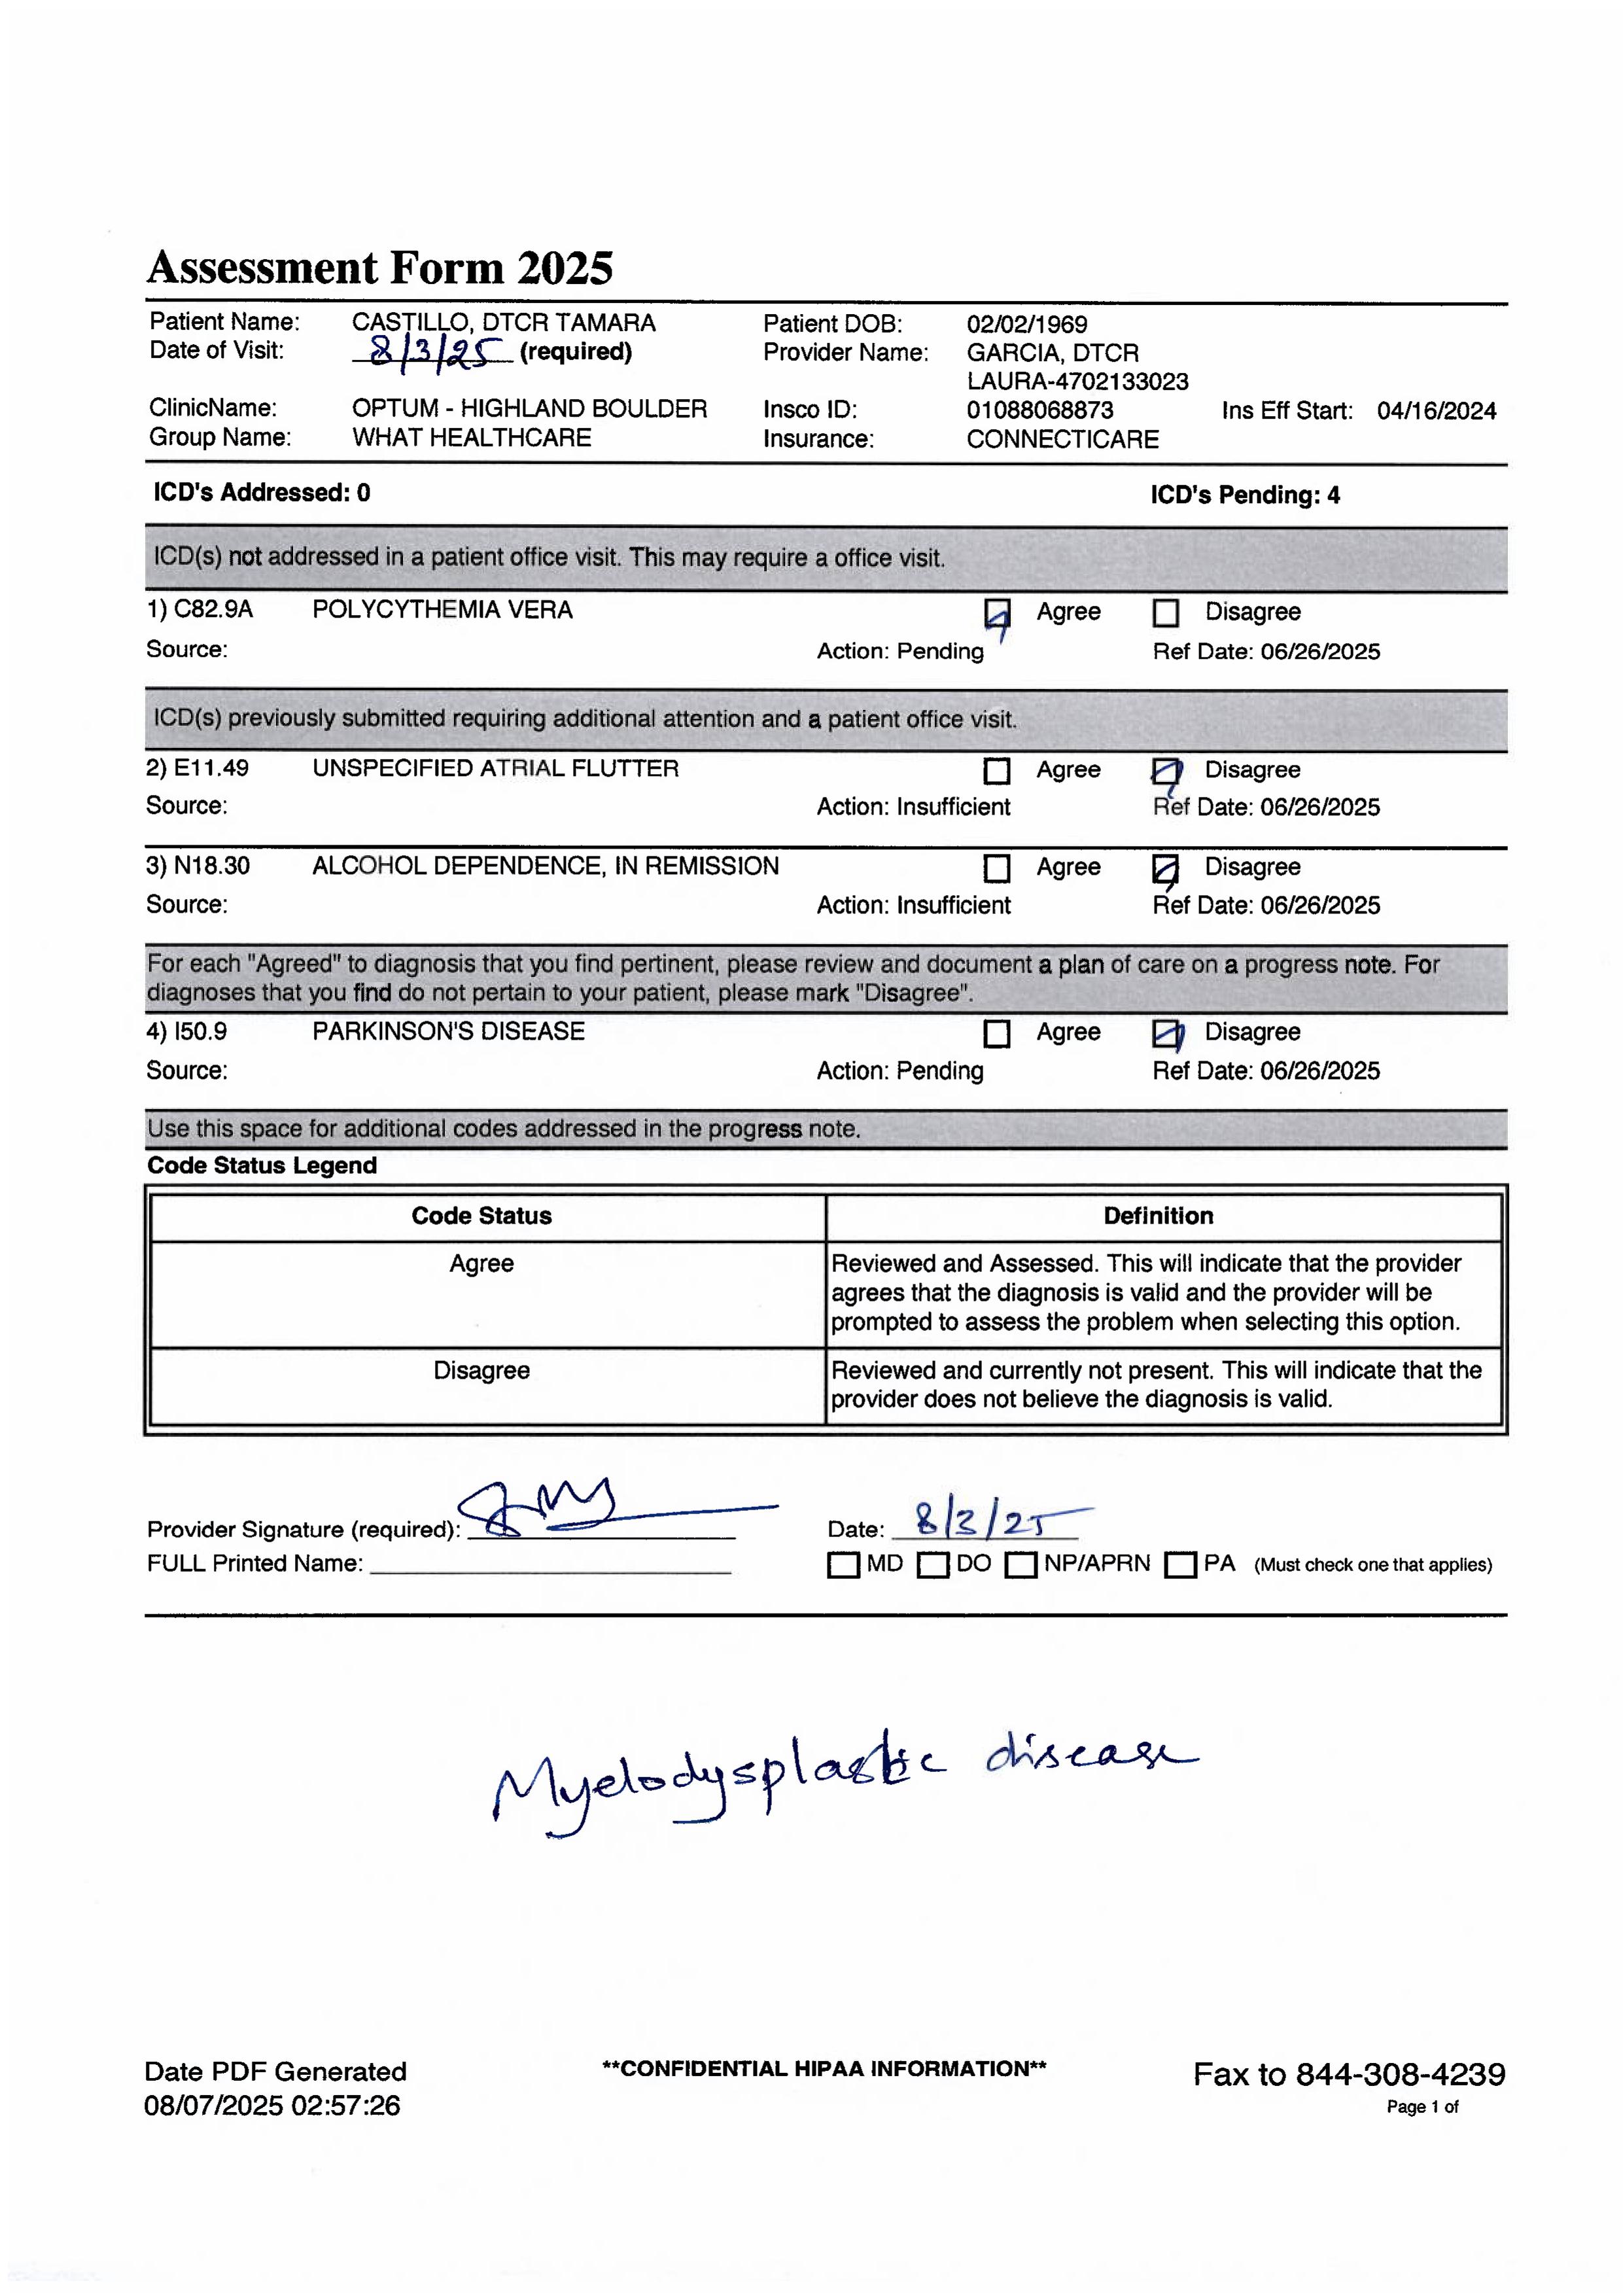 Assessment Form 2025
Patient Name: CASTILLO, DTCR TAMARA Patient DOB: 02/02/1969
Date of Visit: 8/3/25 (required) Provider Name: GARCIA, DTCR
LAURA-4702133023
ClinicName: OPTUM - HIGHLAND BOULDER Insco ID: 01088068873 Ins Eff Start: 04/16/2024
Group Name: WHAT HEALTHCARE Insurance: CONNECTICARE
ICD's Addressed: 0 ICD's Pending: 4
ICD(s) not addressed in a patient office visit. This may require a office visit.
1) C82.9A POLYCYTHEMIA VERA Agree Disagree
Source: Action: Pending Ref Date: 06/26/2025
ICD(s) previously submitted requiring additional attention and a patient office visit.
2) E11.49 UNSPECIFIED ATRIAL FLUTTER Agree Disagree
Source: Action: Insufficient Ref Date: 06/26/2025
3) N18.30 ALCOHOL DEPENDENCE, IN REMISSION Agree Disagree
Source: Action: Insufficient Ref Date: 06/26/2025
For each "Agreed" to diagnosis that you find pertinent, please review and document a plan of care on a progress note. For
diagnoses that you find do not pertain to your patient, please mark "Disagree".
4) I50.9 PARKINSON'S DISEASE Agree Disagree
Source: Action: Pending Ref Date: 06/26/2025
Use this space for additional codes addressed in the progress note.
Code Status Legend
Code Status Definition
Agree Reviewed and Assessed. This will indicate that the provider
agrees that the diagnosis is valid and the provider will be
prompted to assess the problem when selecting this option.
Disagree Reviewed and currently not present. This will indicate that the
provider does not believe the diagnosis is valid.
Provider Signature (required): Date: 8/3/25
FULL Printed Name: MD DO NP/APRN PA (Must check one that applies)
Myelodysplastic disease
Date PDF Generated **CONFIDENTIAL HIPAA INFORMATION** Fax to 844-308-4239
08/07/2025 02:57:26 Page 1 of